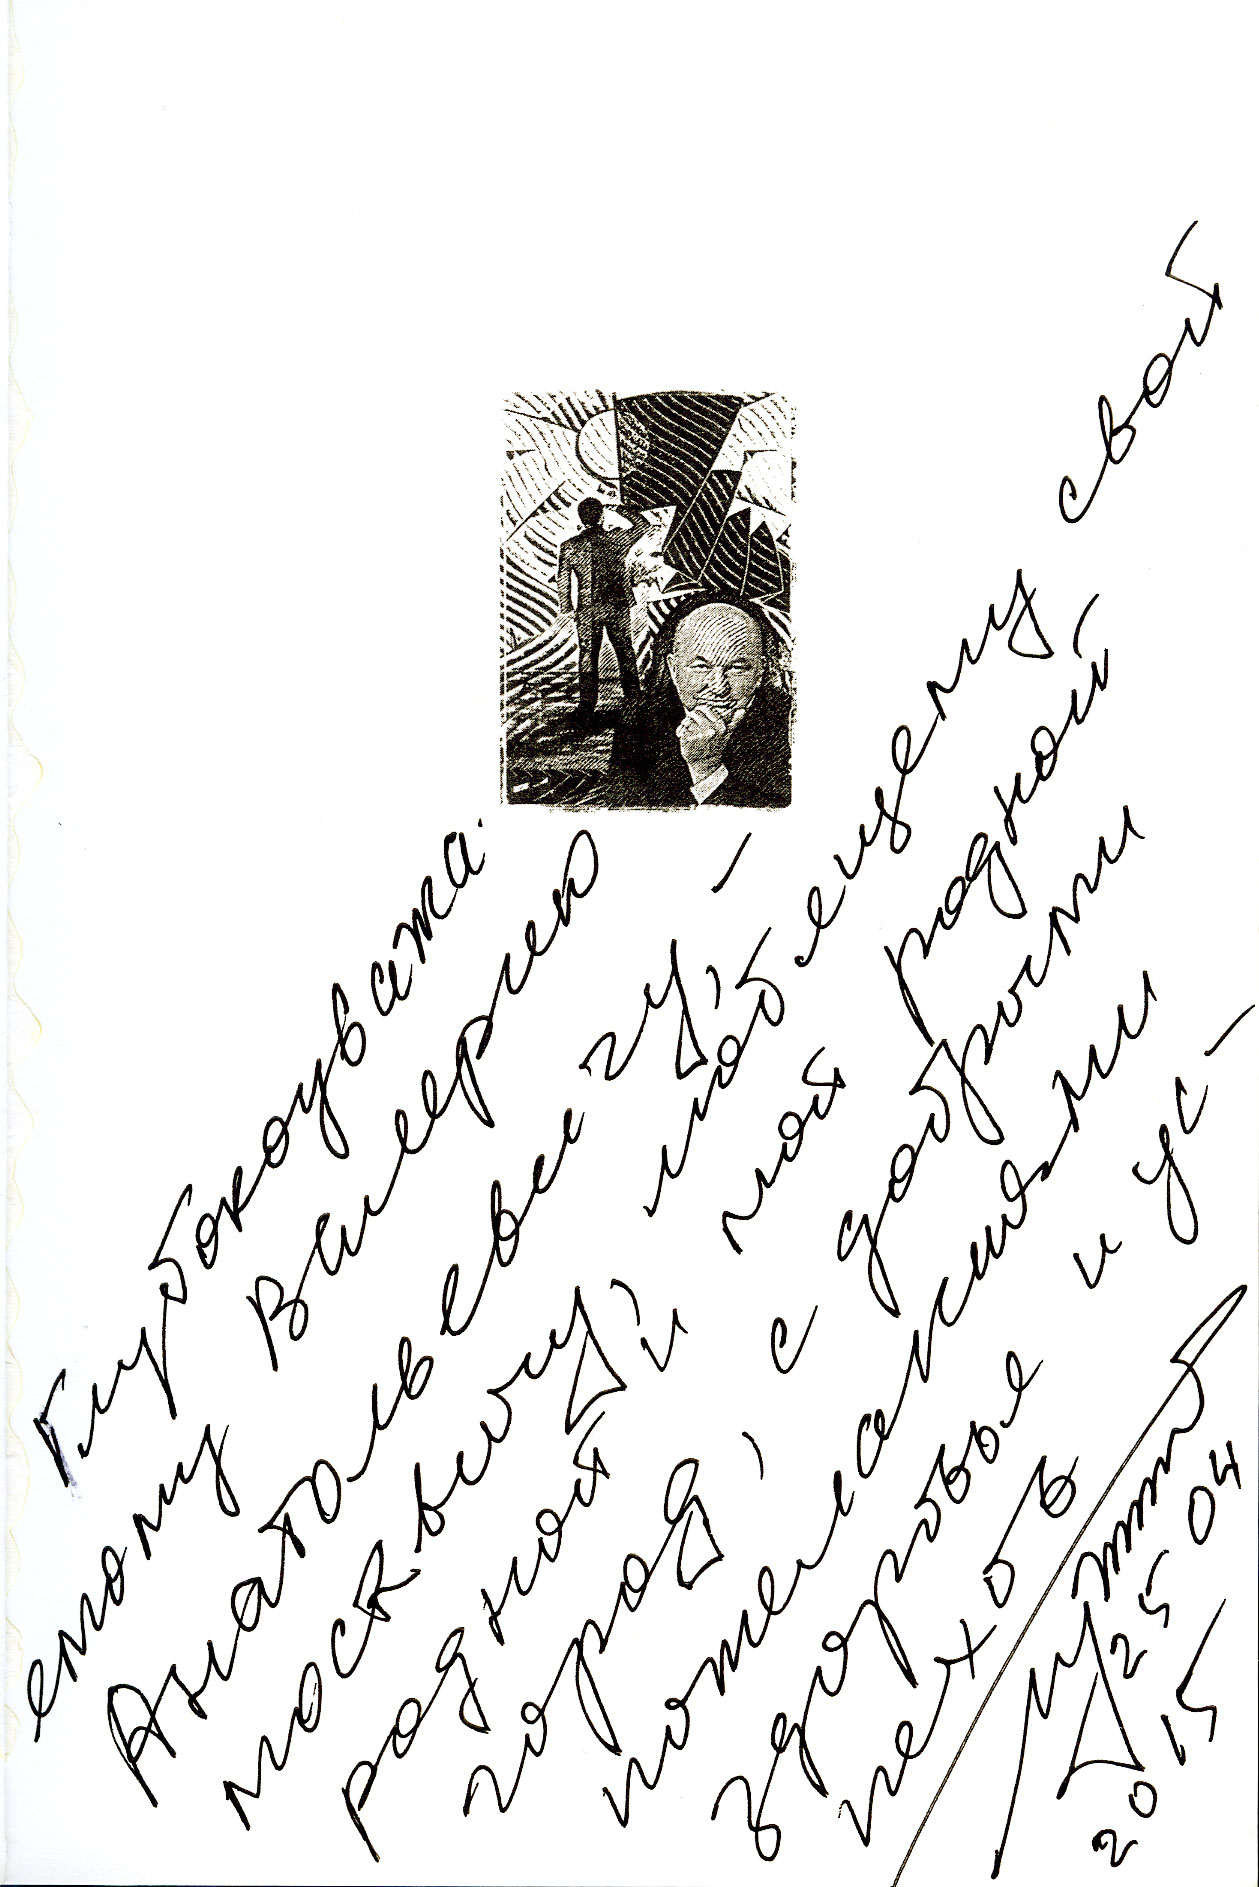 Глубокоуважа-
емому Валерию
Анатольевичу,
москвичу, любящему свой
родной и мой родной
город, с добрыми
пожеланиями
здоровья и ус-
пехов
25 04
2015